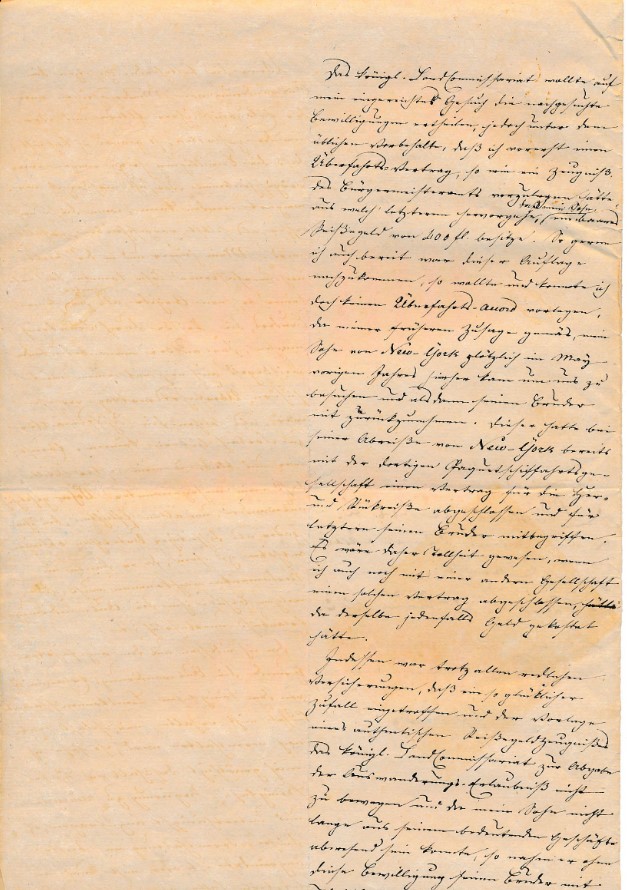 Das königl. LandCommissariat wollte auf
mein eingereichtes Gesuch die nachgesuchte
Bewilligung ertheilen, jedoch unter dem
üblichen Vorbehalte, daß ich vorerst einen
Überfahrts-Vertrag, so wie ein Zeugniß
des Bürgermeisteramts vorzulegen hätte
daß mein Sohn
aus welch letzterem hervorgehe, ein baares
Reißegeld von 400 fl besitze. So gerne
ich auch bereit war dieser Auflage
nachzukommen, so wollte und konnte ich
doch keinen Überfahrts-Accord vorlegen,
da meiner früheren Zusage gemäs, mein
Sohn von New-York plötzlich im May
vorigen Jahres hieher kam um uns zu
besuchen und alsdann seinen Bruder
mit zurückzunehmen. Dieser hatte bei
seiner Abreiße von New-York bereits
mit der dortigen Paquetschiffahrtsge-
sellschaft einen Vertrag für die Her-
und Rükreiße abgeschlossen und für
letztern seinen Bruder mitbegriffen.
Es wäre daher Tollheit gewesen, wenn
ich auch noch mit einer andern Gesellschaft
einen solchen Vertrag abgeschlossen hätte
da derselbe jedenfalls Geld gekostet
hätte.
Indessen war trotz allen redlichen
Versicherungen, daß ein so glücklicher
Zufall eingetroffen und der Vorlage
eines authentischen Reißegeldzeugnißes
das königl. LandCommissariat zur Abgabe
der Auswanderungs-Erlaubniß nicht
zu bewegen und da mein Sohn nicht
lange aus seinem bedeutenden Geschäfte
abwesend sein konnte, so nahm er ohne
diese Bewilligung seinen Bruder mit